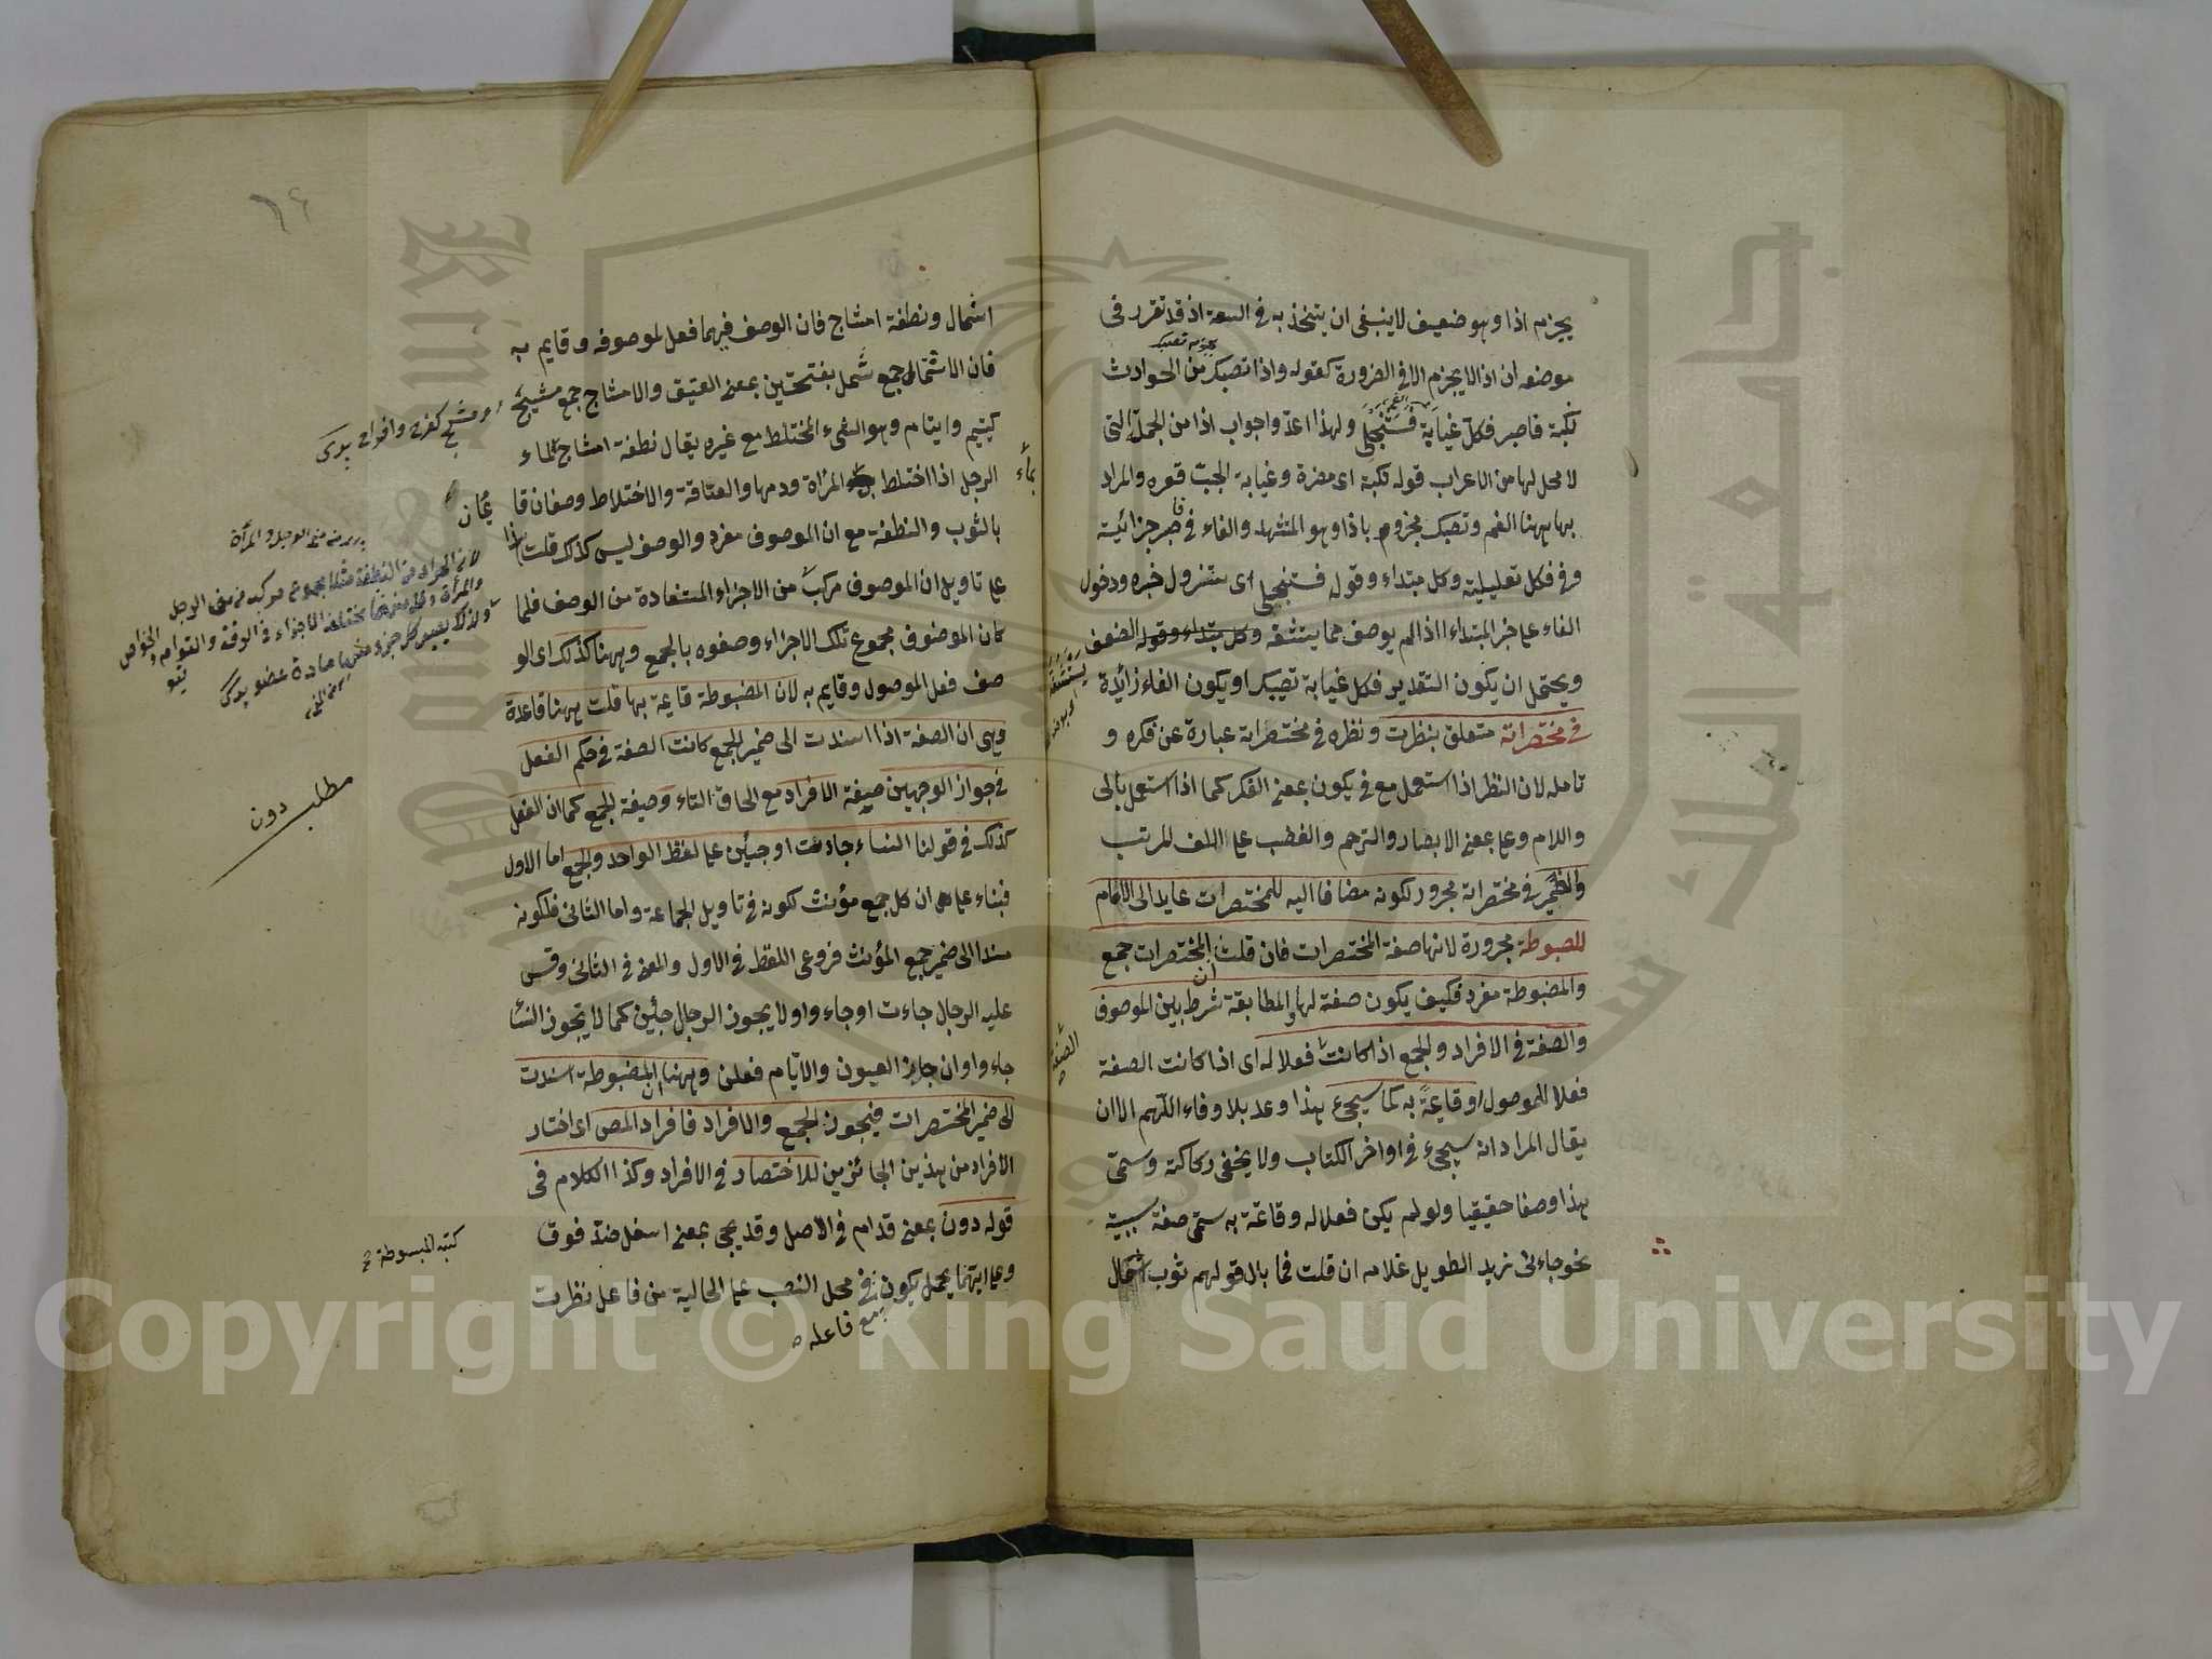 يجزم اذا وهو ضعيف لا ينبغى ان يتخذ به فى السعة اذ قد تقرر فى
موضعه ان اذا لا يجزم الا فى الضرورة كقوله واذا تصبك من الحوادث
نكبة فاصبر فكل غيابة فستنجلى ولهذا اعدّوا جواب اذا من الجمل التى
لا محل لها من الاعراب قوله نكبة اى مضرة وغيابة الجبّ قعره والمراد
بها ههنا الغم وتصبك مجزوم باذا وهو المتشهد والفاء فى فاصبر جزائية
وفى فكل تعليلية وكل مبتداء وقوله فستنجلى اى ستنزول خبره ودخول
الفاء على خبر المبتداء اذا لم يوصف مما يتثقه وكل مبتداء وقوله الضعف
ويحتمل ان يكون التقدير فكل غيابة تصيبك او يكون الفاء زائدة
فى مختصراته متعلق بنظرت ونظره فى مختصراته عبارة عن فكره و
تامله لان النظر اذا استعمل مع فى يكون بمعنى الفكر كما اذا استعمل بالى
واللام وعلى بمعنى الابصار والترحم والغضب على اللف المرتب
والضمير فى مختصراته مجرور لكونه مضافا اليه للمختصرات عايد الى الامام
المضبوطة مجرورة لانها صفة المختصرات فان قلت ان المختصرات جمع
والمضبوطة مفرد فكيف يكون صفة لها والمطابقة شرط بين الموصوف
والصفة فى الافراد والجمع اذا كانت فعلا له اى اذا كانت الصفة
فعلا للموصول او قايمة به كما سيجىء هذا وعد بلا وفاء اللهم الا ان
يقال المراد انه سيجىء فى اواخر الكتاب ولا يخفى ركاكته وسمّى
هذا وصفا حقيقيا ولو لم يكن فعلا له وقائمة به سمّى صفة سببية
نحو جاءنى زيد الطويل غلامه ان قلت فما بال قولهم ثوب اشمال
اشمال ونطفة امشاج فان الوصف فيهما فعل لموصوفه وقايم به
فان الاشمال جمع شمل بفتحتين بمعنى العتيق والامشاج جمع مشيج
كيتيم وايتام وهو الشىء المختلط مع غيره يقال نطفة امشاج لماء
الرجل اذا اختلط بماء المرأة ودمها والعتاقة والاختلاط وصفان قا
يمان
بالثوب والنطفة مع ان الموصوف مفرد والوصف ليس كذلك قلت هذا
على تاويل ان الموصوف مركب من الاجزاء المستفادة من الوصف فلما
كان الموصوف مجموع تلك الاجزاء وصفوه بالجمع وههنا كذلك اى الو
صف فعل الموصول وقايم به لان المضبوطة قايمة بها قلت ههنا قاعدة
وهى ان الصفة اذا اسندت الى ضمير الجمع كانت الصفة فى حكم الفعل
فى جواز الوجهين صيغة الافراد مع الحاق التاء وصيغة الجمع كما ان الفعل
كذلك فى قولنا النساء جاءت او جئن على لفظ الواحد والجمع اما الاول
فبناء على ان كل جمع مؤنث لكونه فى تاويل الجماعة واما الثانى فلكونه
مسندا الى ضمير جمع المؤنث فروعى اللفظ فى الاول والمعنى فى الثانى وقس
عليه الرجال جاءت او جاءوا ولا يجوز الرجال جئن كما لا يجوز النساء
جاءوا وان جاز العيون والايام فعلن وههنا ان المضبوطة اسندت
الى ضمير المختصرات فيجوز الجمع والافراد فافراد المص اى اختار
الافراد من هذين الجائزين للاختصار فى الافراد وكذا الكلام فى
قوله دون بمعنى قدام فى الاصل وقد يجى بمعنى اسفل ضد فوق
وعلى ايتهما يحمل يكون فى محل النصب على الحالية من فاعل نظرت
مع فاعله
مطلب دون
كتبه المبسوطة
٦٤
Copyright © King Saud University